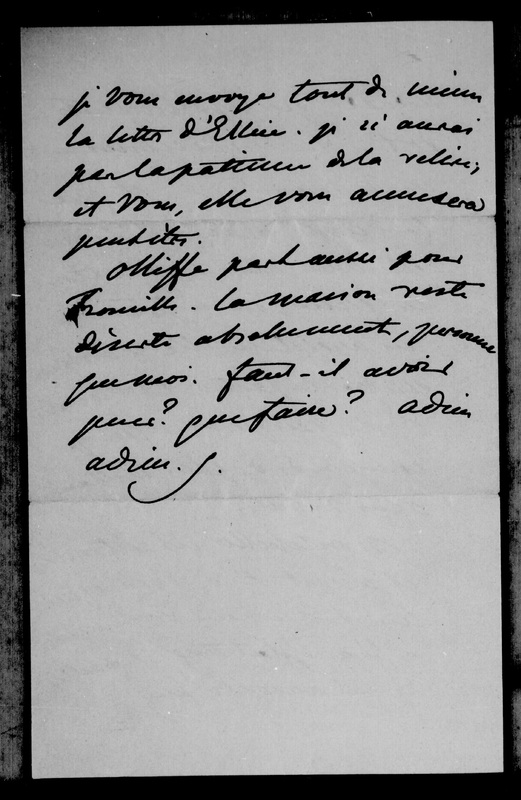 je vous envoye tout de même
la lettre d'Ellice. je n'aurai
pas la patience de la relire;
et vous, elle vous amusera
peut être.
Olliffe part aussi pour
Trouville. la maison reste
déserte absolument, personne
que moi. faut-il avoir
peur? que faire? adieu
adieu.